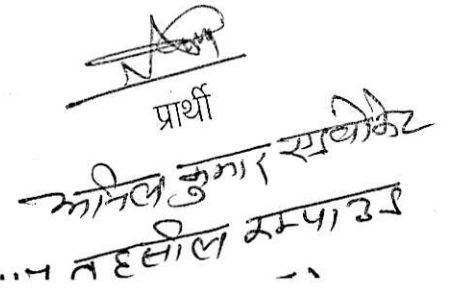 प्रार्थी
अनिल कुमार एडवोकेट
तहसील कम्पाउंड